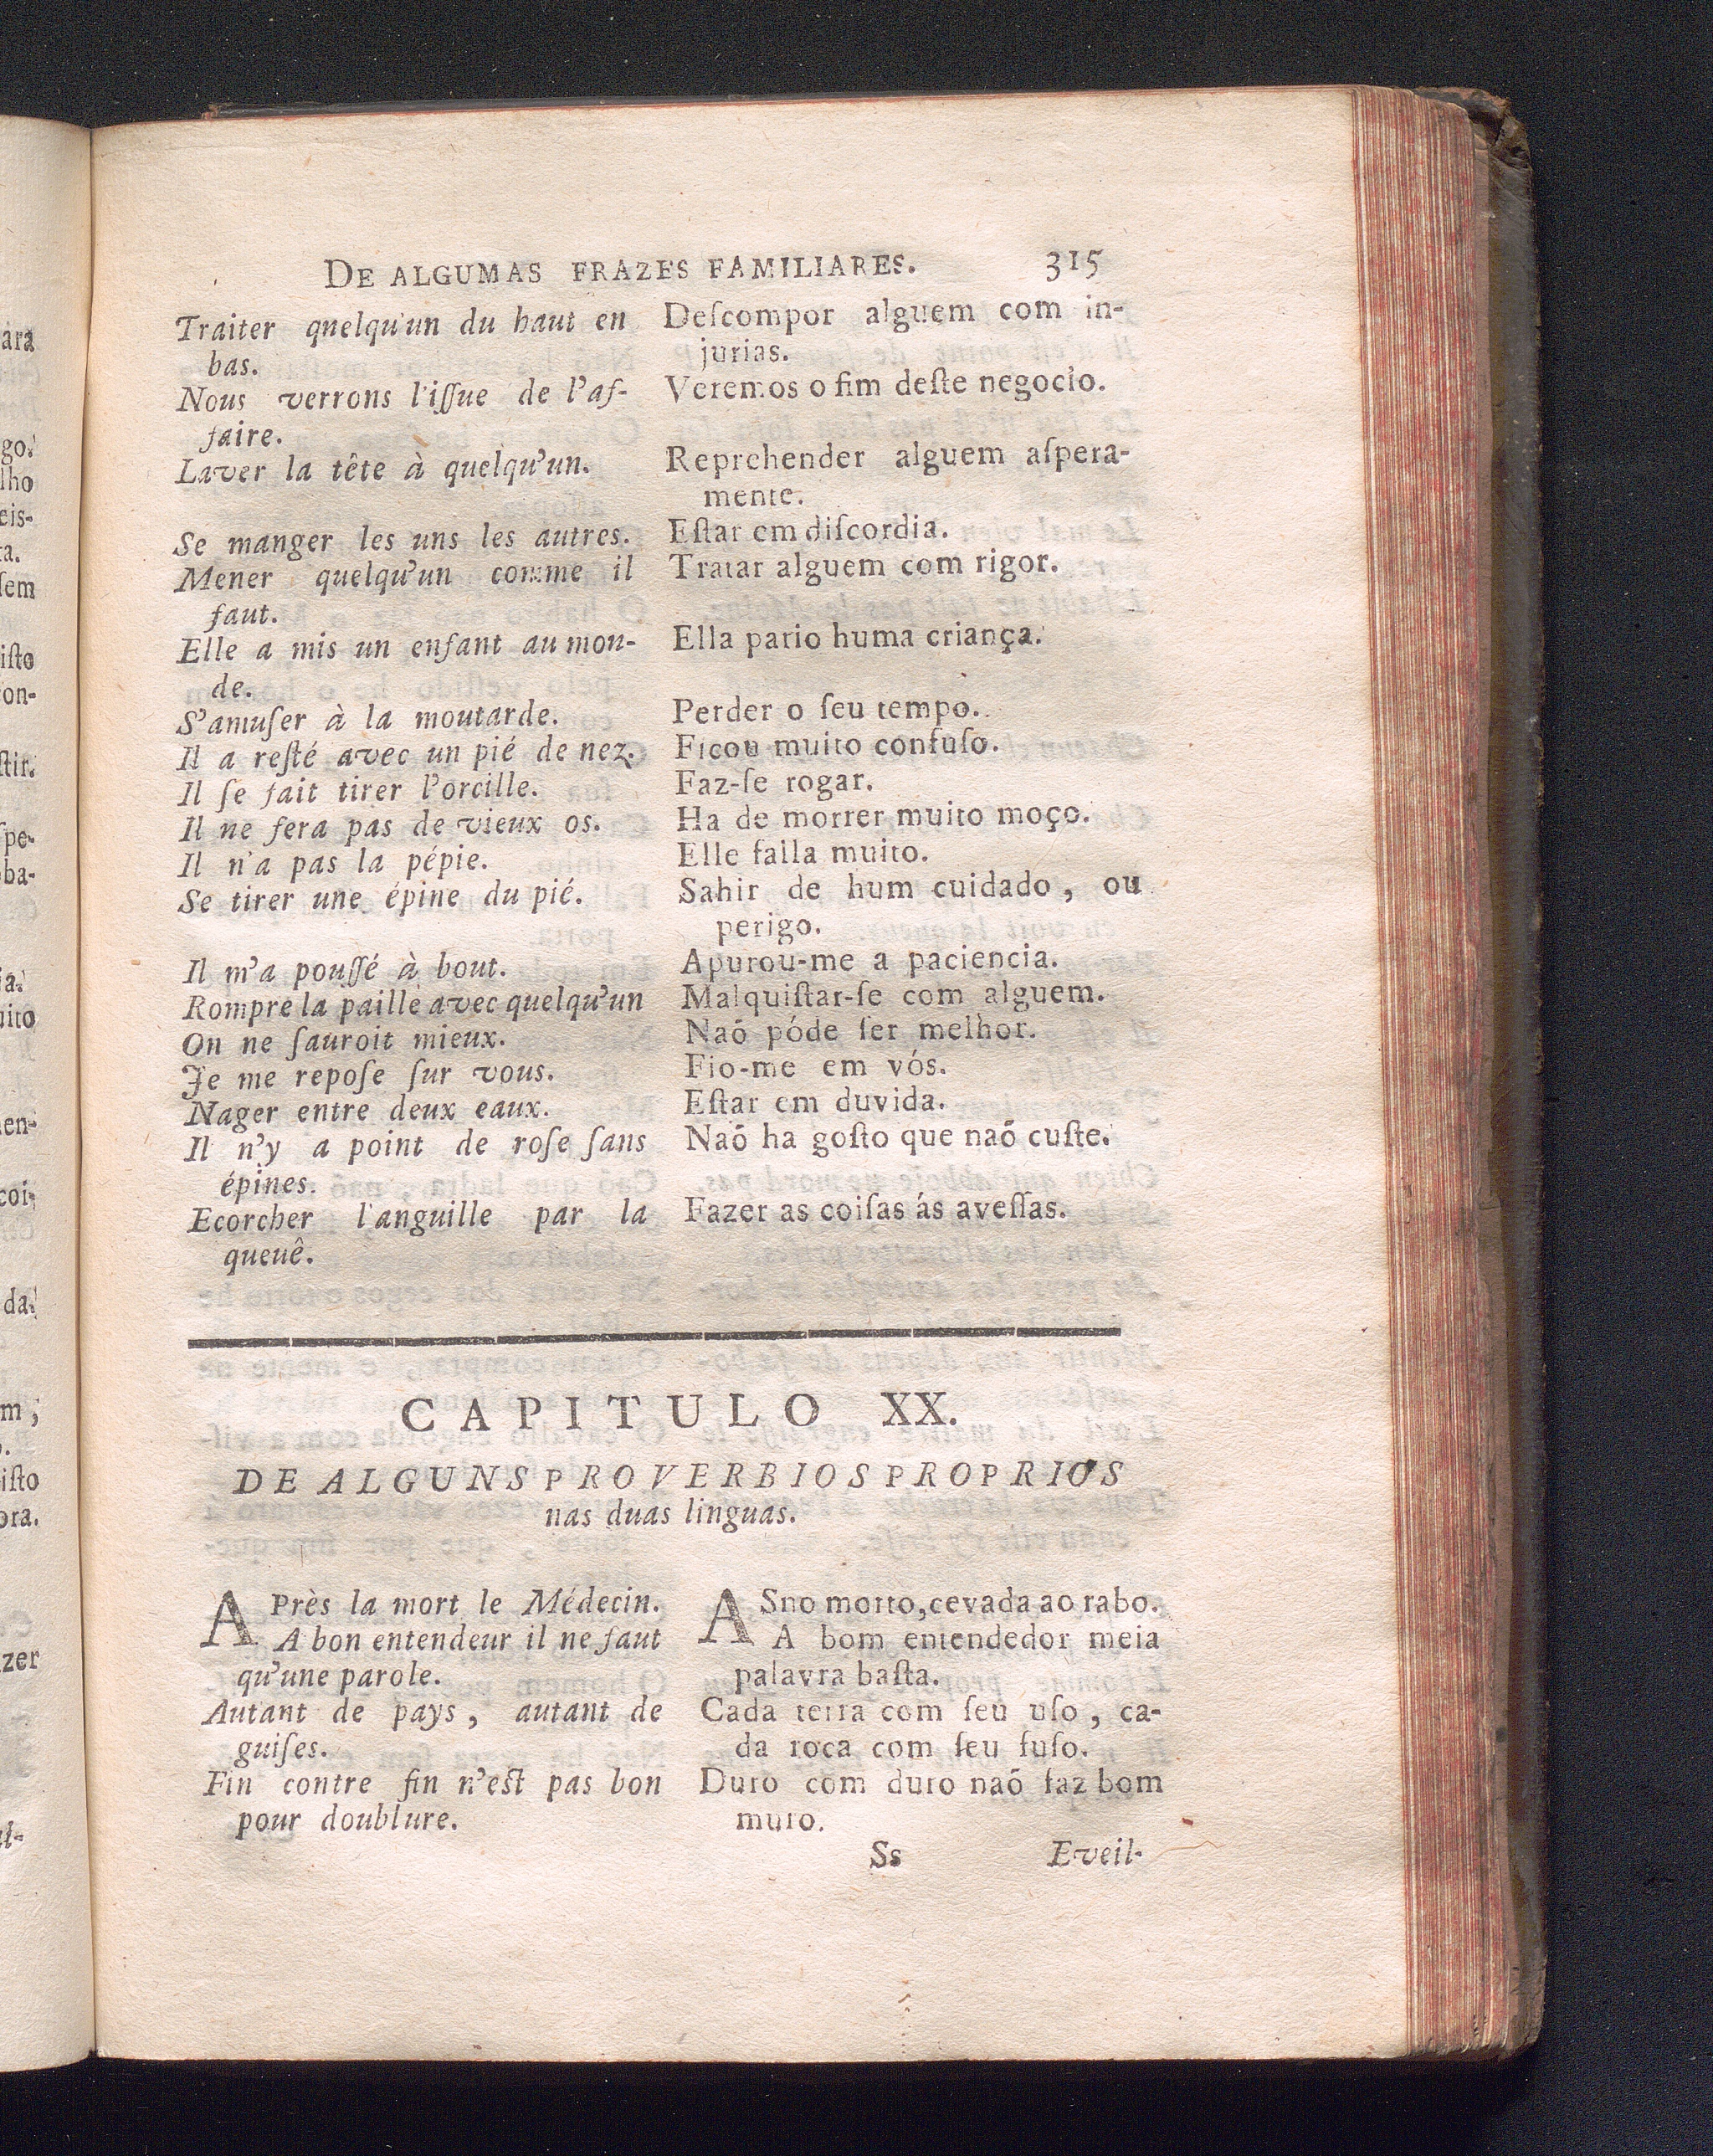 DE ALGUMAS FRAZES FAMILIARES. 315
Traiter quelqu'un du haut en
bas.
Nous verrons l'iſſue de l'af-
faire.
Laver la tête à quelqu'un.
Se manger les uns les autres.
Mener quelqu'un comme il
faut.
Elle a mis un enfant au mon-
de.
S'amuſer à la moutarde.
Il a reſté avec un pié de nez.
Il ſe fait tirer l'oreille.
Il ne fera pas de vieux os.
Il n'a pas la pépie.
Se tirer une épine du pié.
Il m'a pouſſé à bout.
Rompre la paille avec quelqu'un
On ne ſauroit mieux.
Je me repoſe ſur vous.
Nager entre deux eaux.
Il n'y a point de roſe ſans
épines.
Ecorcher l'anguille par la
queuê.
Deſcompor alguem com in-
jurias.
Veremos o fim deſte negocio.
Reprehender alguem aſpera-
mente.
Eſtar em diſcordia.
Tratar alguem com rigor.
Ella pario huma criança.
Perder o ſeu tempo.
Ficou muito confuſo.
Faz-ſe rogar.
Ha de morrer muito moço.
Elle falla muito.
Sahir de hum cuidado, ou
perigo.
Apurou-me a paciencia.
Malquiſtar-ſe com alguem.
Naõ póde ſer melhor.
Fio-me em vós.
Eſtar em duvida.
Naõ ha goſto que naõ cuſte.
Fazer as coiſas ás aveſſas.
CAPITULO XX.
DE ALGUNS PROVERBIOS PROPRIOS
nas duas linguas.
APrès la mort le Médecin.
A bon entendeur il ne faut
qu'une parole.
Autant de pays, autant de
guiſes.
Fin contre fin n'eſt pas bon
pour doublure.
ASno morto, cevada ao rabo.
A bom entendedor meia
palavra baſta.
Cada terra com ſeu uſo, ca-
da roca com ſeu fuſo.
Duro com duro naõ faz bom
muro.
Ss Eveil-